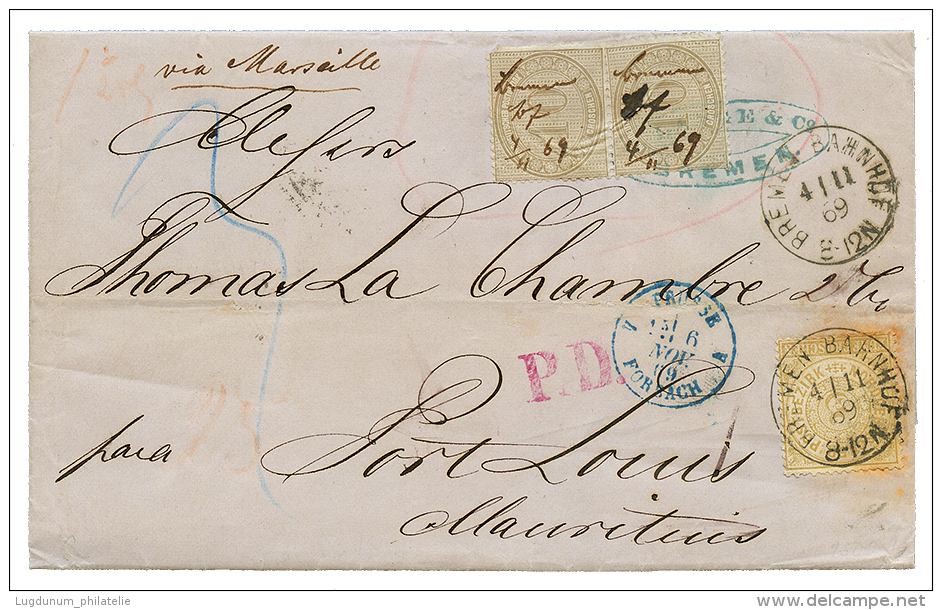 via Marseille
Bremen
bf
4/11 69
Bremen
bf
4/11 69
10
10
E & Co
BREMEN.
BREMEN BAHNHOF
4 | 11
69
8-12 N
Messrs
Thomas La Chambre & Co
PRUSSE
6
NOV
69
FORBACH
P.D.
BREMEN BAHNHOF
4 | 11
69
8-12 N
BEZIRK
para
Port Louis
Mauritius
Lugdunum_philatelie
delcampe.net